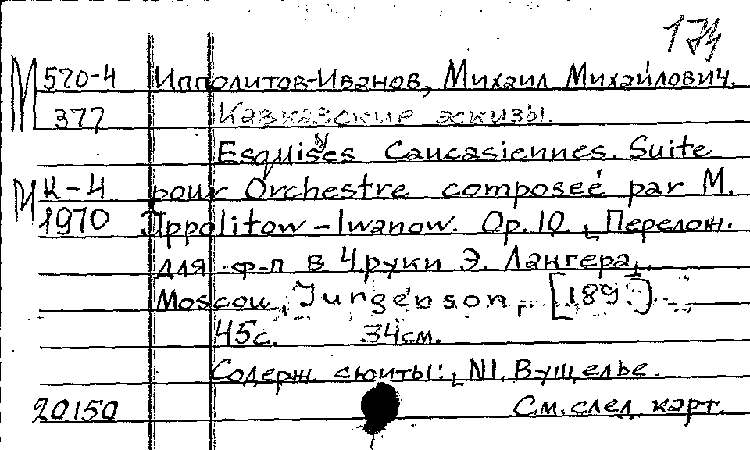 174
М 520-4 Ипполитов-Иванов, Михаил Михайлович.
377 Кавказские эскизы.
Esquisses Caucasiennes. Suite
М К-4 pour Orchestre composeé par M.
1970 Ippolitow-Iwanow. Op. 10. [Перелож.
для ф-п в 4 руки Э. Лангера].
Moscou, Jurgenson, [189-]
45с. 34см.
Содерж. сюиты: [N1. В ущелье.
20150 См. след. карт.